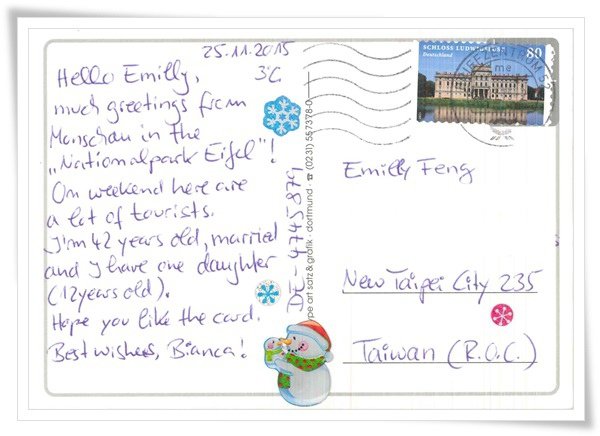 25.11.2015
3°C
Hello Emilly,
much greetings from
Monschau in the
„Nationalpark Eifel"!
On weekend here are
a lot of tourists.
I'm 42 years old, married
and I have one daughter
(12 years old).
Hope you like the card.
Best wishers, Bianca!
DE-4745879
pe art satz & grafik · dortmund · ☎ (0231) 557378-0
SCHLOSS LUDWIGSLUST
Deutschland
80
Emilly Feng
New Taipei City 235
Taiwan (R.O.C.)